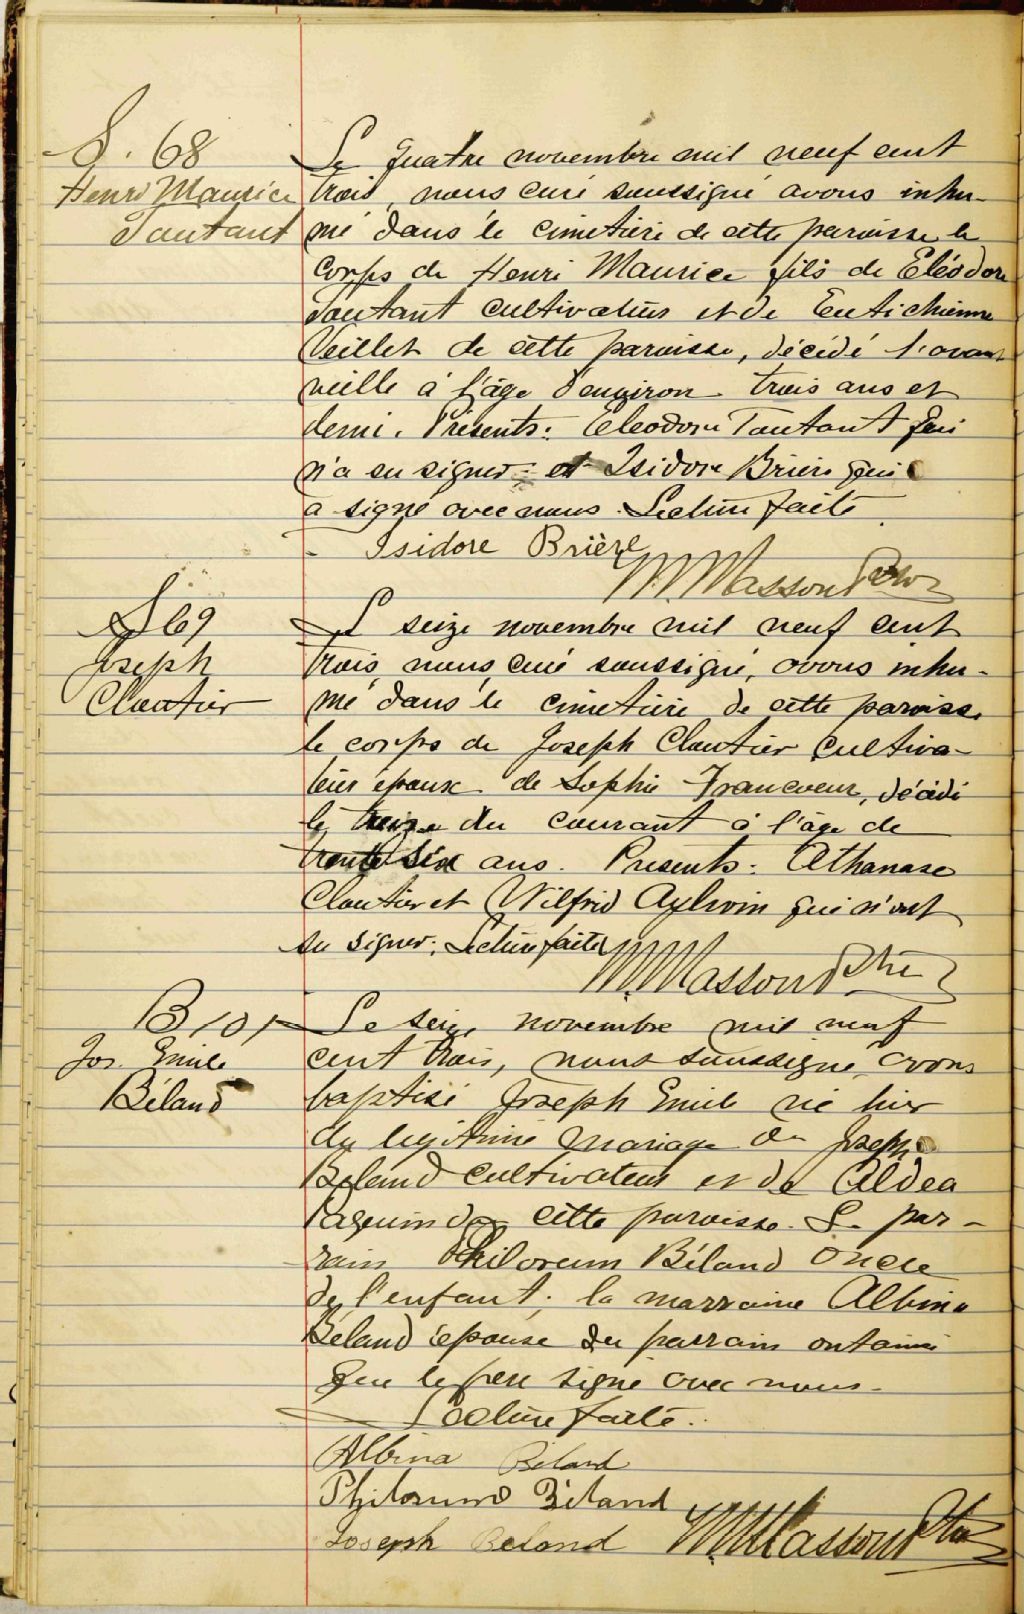 S. 68
Henri Maurice
Tautant
Le quatre novembre mil neuf cent
trois, nous curé soussigné avons inhu-
mé dans le cimetière de cette paroisse le
corps de Henri Maurice fils de Eléodore
Tautant cultivateur et de Eutichienne
Veillet de cette paroisse, décédé l'avant
veille à l'âge d'environ trois ans et
demi. Présents: Eleodore Tautant qui
n'a su signer et Isidore Brière qui
a signé avec nous. Lecture faite
Isidore Brière
M. Masson Ptre
S 69
Joseph
Cloutier
Le seize novembre mil neuf cent
trois, nous, curé soussigné, avons inhu-
mé dans le cimetière de cette paroisse
le corps de Joseph Cloutier cultiva-
teur époux de Sophie Francoeur, décédé
le treize du courant à l'âge de
trente six ans. Présents: Athanase
Cloutier et Wilfrid Aylwin qui n'ont
su signer. Lecture faite
M. Masson Ptre
B 101
Jos. Emile
Béland
Le seize novembre mil neuf
cent trois, nous soussigné, avons
baptisé Joseph Emile né hier
du légitime mariage de Joseph
Béland cultivateur et de Aldea
de cette paroisse. Le par-
rain Philorum Béland oncle
de l'enfant; la marraine Albina
Béland épouse du parrain ont ainsi
que le père signé avec nous.
Lecture faite.
Albina Béland
Philorum Béland
Joseph Béland
M. Masson Ptre